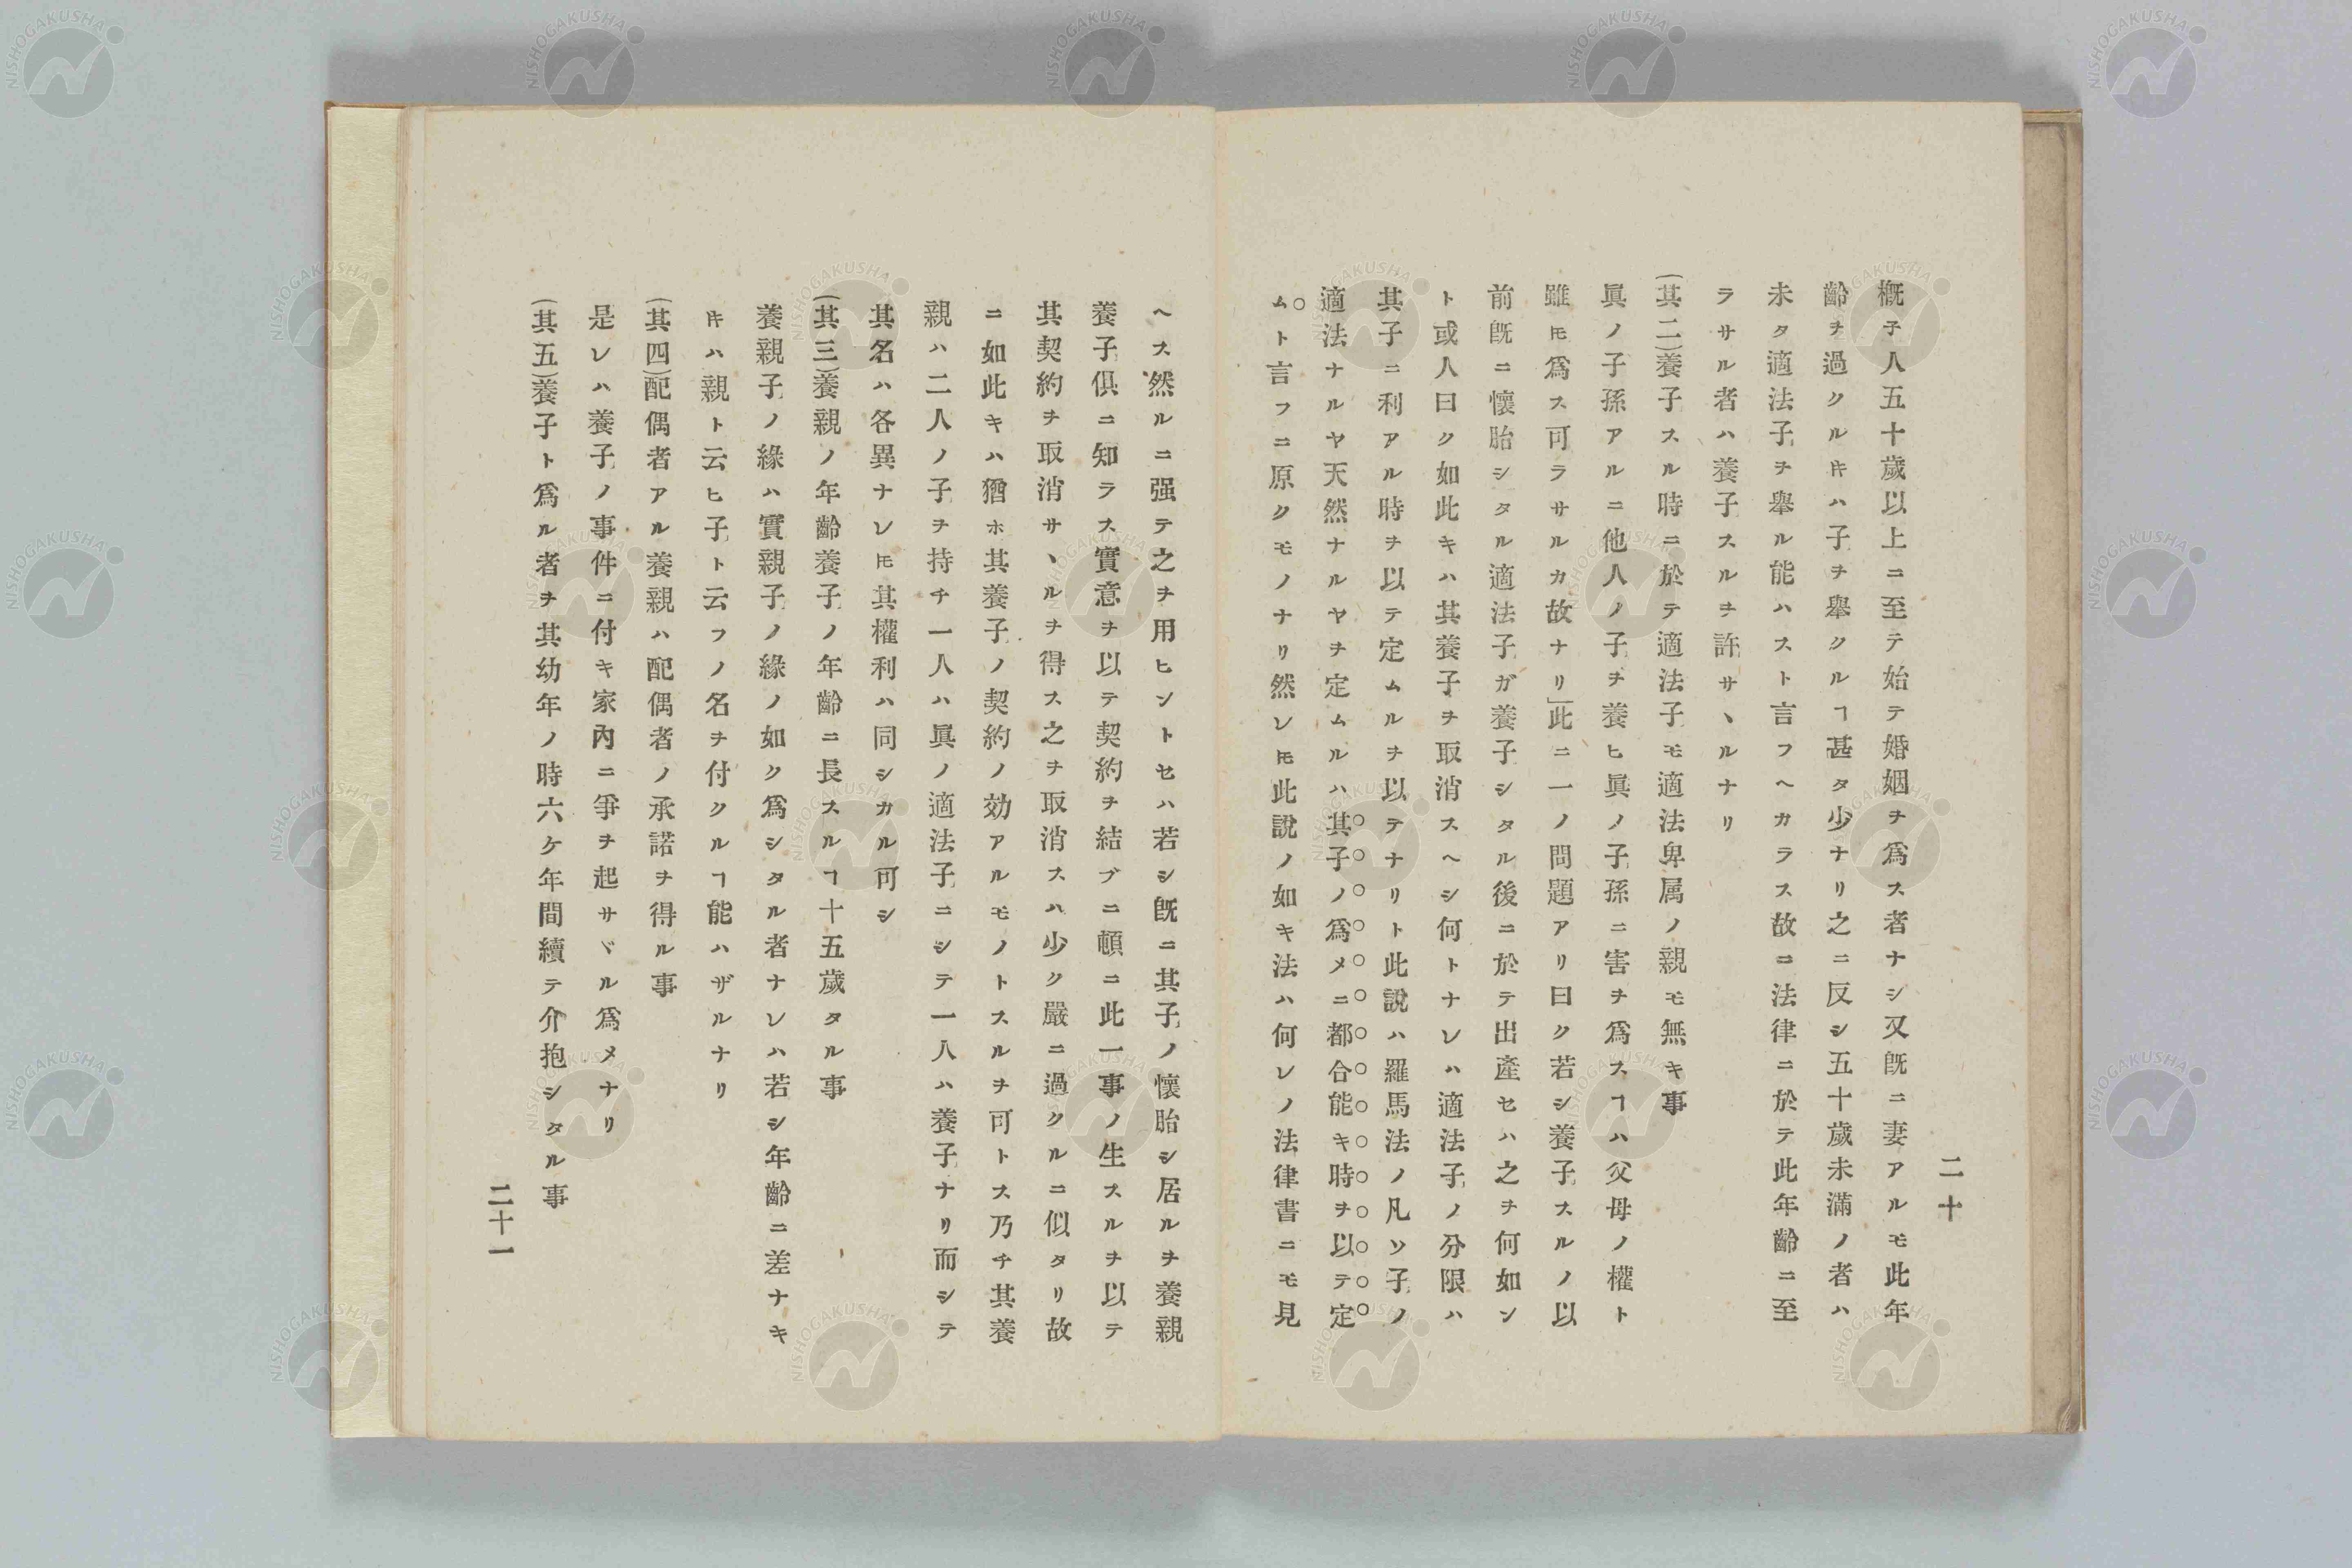 二十
概子人五十歲以上ニ至テ始テ婚姻ヲ爲ス者ナシ又旣ニ妻アルモ此年
齡ヲ過クルキハ子ヲ擧クルヿ甚タ少ナリ之ニ反シ五十歲未滿ノ者ハ
未タ適法子ヲ擧ル能ハスト言フヘカラス故ニ法律ニ於テ此年齡ニ至
ラサル者ハ養子スルヲ許サヽルナリ
(其二)養子スル時ニ於テ適法子モ適法卑属ノ親モ無キ事
眞ノ子孫アルニ他人ノ子ヲ養ヒ眞ノ子孫ニ害ヲ爲スヿハ父母ノ權ト
雖𪜈爲ス可ラサルカ故ナリ」此ニ一ノ問題アリ曰ク若シ養子スルノ以
前旣ニ懷胎シタル適法子ガ養子シタル後ニ於テ出產セハ之ヲ何如ン
ト或人曰ク如此キハ其養子ヲ取消スヘシ何トナレハ適法子ノ分限ハ
其子ニ利アル時ヲ以テ定ムルヲ以テナリト此說ハ羅馬法ノ凡ソ子ノ
適法ナルヤ天然ナルヤヲ定ムルハ其子ノ爲メニ都合能キ時ヲ以テ定
ムト言フニ原クモノナリ然レ𪜈此說ノ如キ法ハ何レノ法律書ニモ見
ヘス然ルニ强テ之ヲ用ヒントセハ若シ旣ニ其子ノ懷胎シ居ルヲ養親
養子俱ニ知ラス實意ヲ以テ契約ヲ結ブニ頓ニ此一事ノ生スルヲ以テ
其契約ヲ取消サヽルヲ得ス之ヲ取消スハ少ク嚴ニ過クルニ似タリ故
ニ如此キハ猶ホ其養子ノ契約ノ効アルモノトスルヲ可トス乃チ其養
親ハ二人ノ子ヲ持チ一人ハ眞ノ適法子ニシテ一人ハ養子ナリ而シテ
其名ハ各異ナレ𪜈其權利ハ同シカル可シ
(其三)養親ノ年齡養子ノ年齡ニ長スルヿ十五歲タル事
養親子ノ緣ハ實親子ノ緣ノ如ク爲シタル者ナレハ若シ年齡ニ差ナキ
キハ親ト云ヒ子ト云フノ名ヲ付クルヿ能ハザルナリ
(其四)配偶者アル養親ハ配偶者ノ承諾ヲ得ル事
是レハ養子ノ事件ニ付キ家內ニ爭ヲ起サヾル爲メナリ
(其五)養子ト爲ル者ヲ其幼年ノ時六ケ年間續テ介抱シタル事
二十一
NISHOGAKUSHA